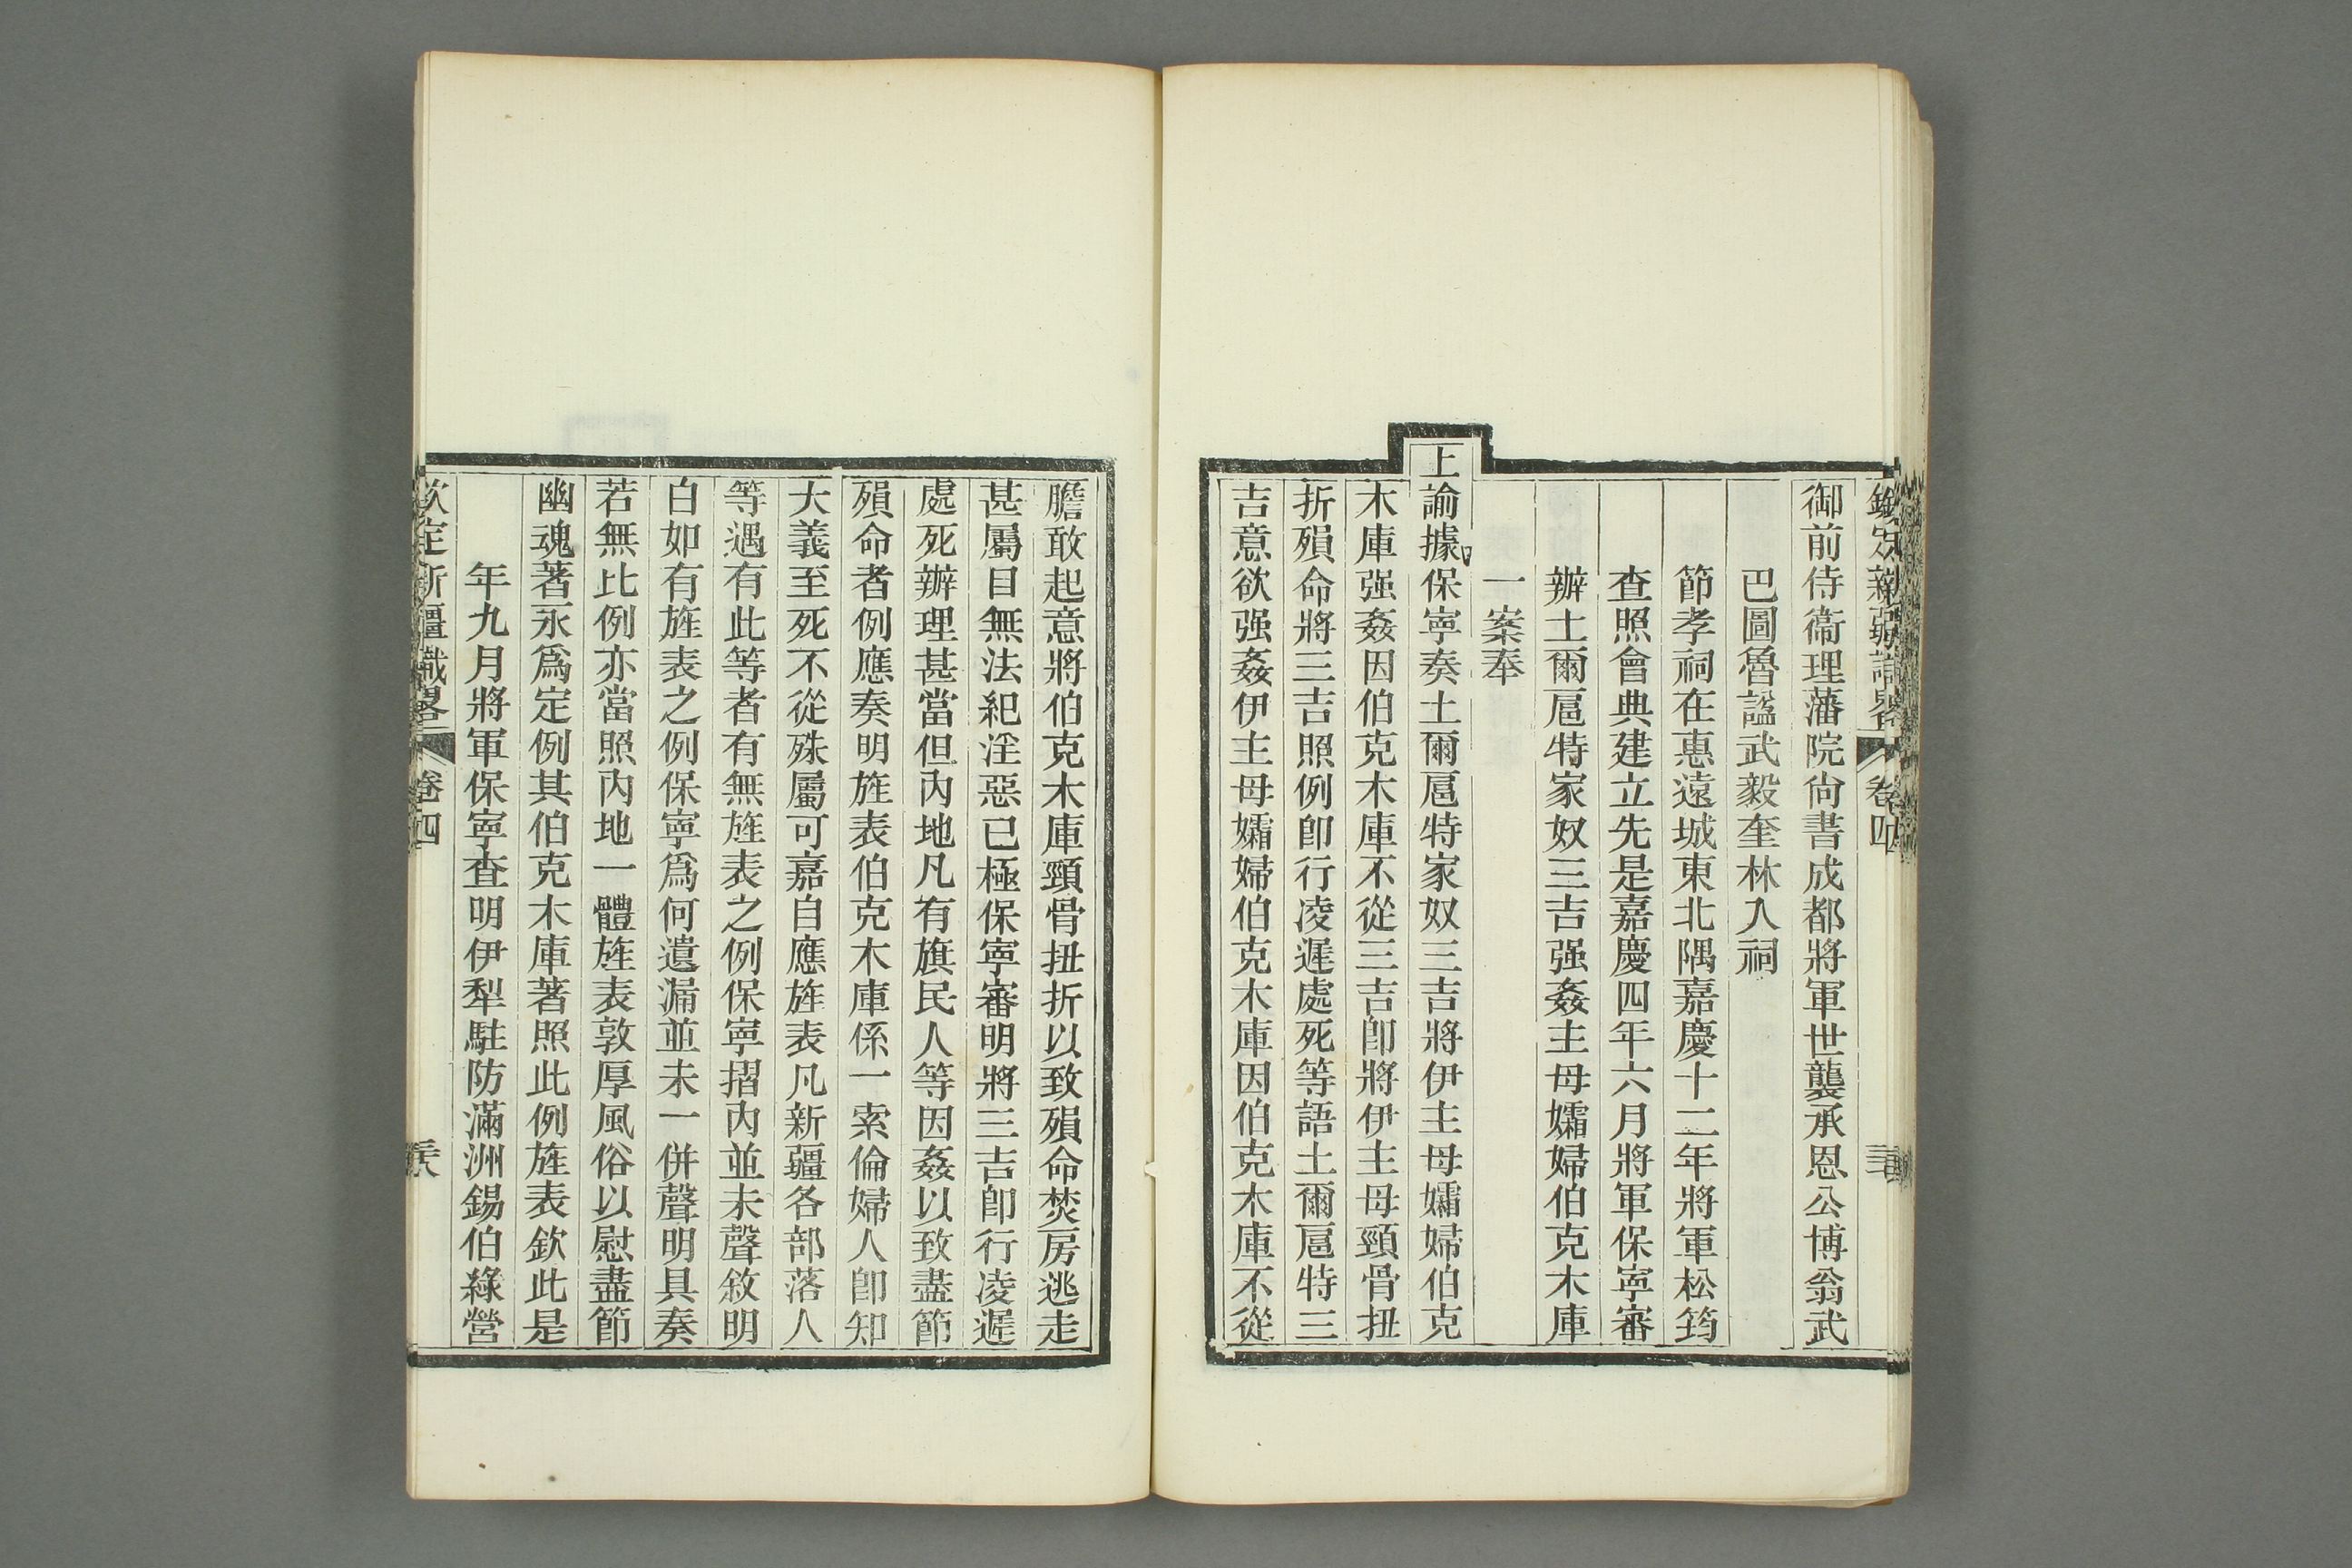 御前侍衞理藩院尚書成都將軍世襲承恩公博翁武
巴圖魯謚武毅奎林入祠
節孝祠在惠遠城東北隅嘉慶十二年將軍松筠
查照會典建立先是嘉慶四年六月將軍保寧審
辦土爾扈特家奴三吉强姦主母孀婦伯克木庫
一案奉
上諭據保寧奏土爾扈特家奴三吉將伊主母孀婦伯克
木庫强姦因伯克木庫不從三吉卽將伊主母頸骨扭
折殞命將三吉照例卽行凌遲處死等語土爾扈特三
吉意欲强姦伊主母孀婦伯克木庫因伯克木庫不從
膽敢起意將伯克木庫頸骨扭折以致殞命焚房逃走
甚屬目無法紀淫惡已極保寧審明將三吉卽行凌遲
處死辦理甚當但內地凡有旗民人等因姦以致盡節
殞命者例應奏明旌表伯克木庫係一索倫婦人卽知
大義至死不從殊屬可嘉自應旌表凡新疆各部落人
等遇有此等者有無旌表之例保寧摺內並未聲敘明
白如有旌表之例保寧爲何遺漏並未一併聲明具奏
若無比例亦當照內地一體旌表敦厚風俗以慰盡節
幽魂著永爲定例其伯克木庫著照此例旌表欽此是
年九月將軍保寧查明伊犁駐防滿洲錫伯綠營
欽定新疆識畧
卷四